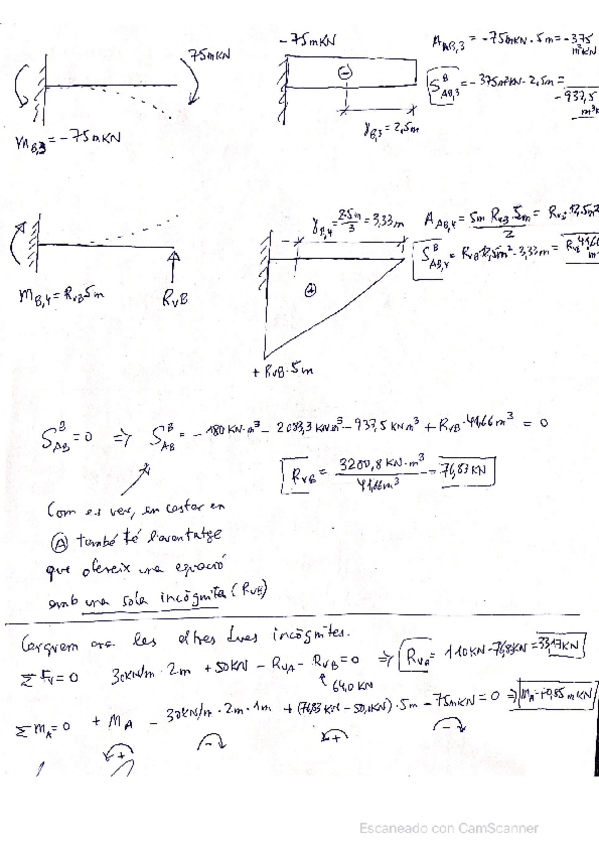 75mKN
- 75mKN
A_AB,3 = -75mKN · 5m = -375 m²KN
M_B,3 = -75mKN
S^B_AB,3 = -375m²KN · 2,5m = -937,5 m³K
γ_B,3 = 2,5m
γ_B,4 = 2·5m/3 = 3,33m
A_AB,4 = 5m R_VB · 5m / 2 = R_VB · 12,5m²
S^B_AB,4 = R_VB 12,5m² · 3,33m = R_VB 41,66 m
M_B,4 = R_VB 5m
R_VB
+ R_VB · 5m
S^B_AB = 0 => S^B_AB = - 180 KN·m³ - 2083,3 KN·m³ - 937,5 KNm³ + R_VB · 41,66 m³ = 0
R_VB = 3200,8 KN·m³ / 41,66m³ = 76,83 KN
Com es veu, en costar en
Ⓐ també té l'avantatge
que ofereix una equació
amb una sola incògnita (R_VB)
Cerquem ara les altres dues incògnites.
ΣF_V = 0 30KN/m · 2m + 50KN - R_VA - R_VB = 0 => R_VA = 110KN - 76,8KN = 33,17KN
64,0 KN
ΣM_A = 0 + M_A - 30KN/m · 2m · 1m + (76,83 KN - 50,0KN) · 5m - 75mKN = 0 =>
+ - + -
Escaneado con CamScanner